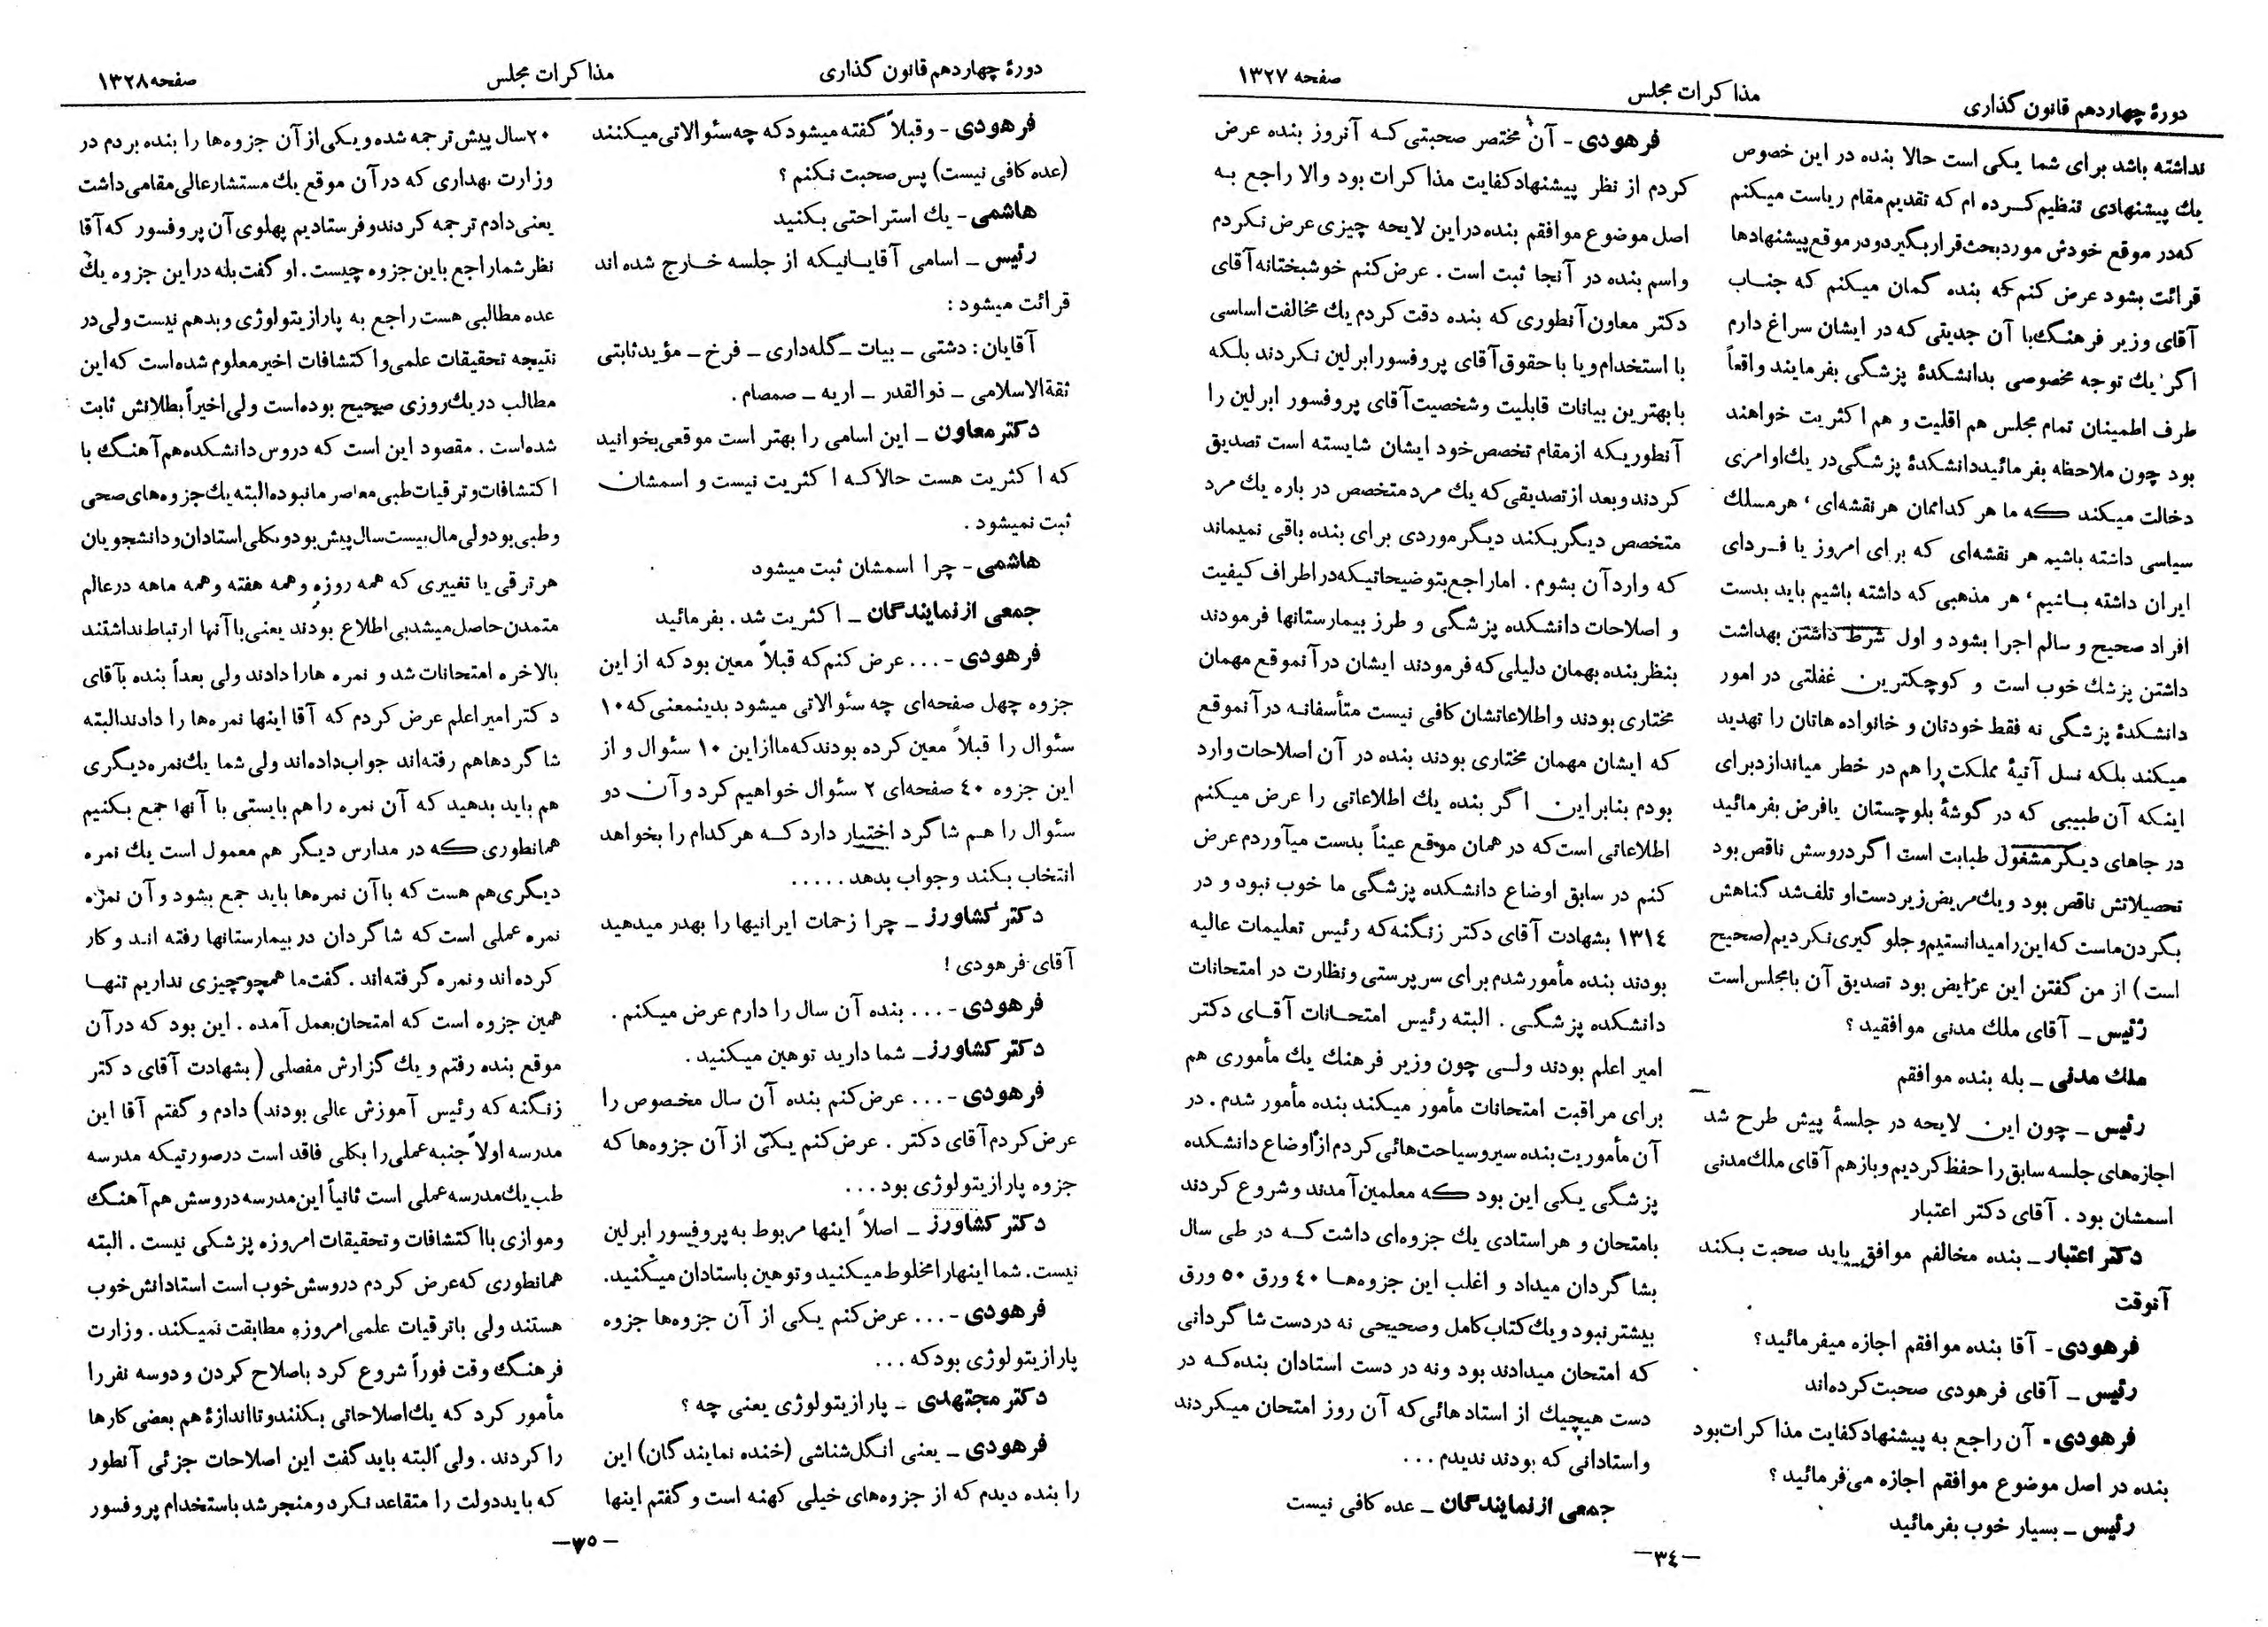 دورهٔ چهاردهم قانون گذاری
مذاکرات مجلس
صفحه ۱۳۲۷
نداشته باشد برای شما یکی است حالا بنده در این خصوص
یك پیشنهادی تنظیم کرده ام که تقدیم مقام ریاست میکنم
که در موقع خودش مورد بحث قرار بگیرد و در موقع پیشنهادها
قرائت بشود عرض کنم که بنده گمان میکنم که جناب
آقای وزیر فرهنگ با آن جدیتی که در ایشان سراغ دارم
اگر یك توجه مخصوصی بدانشکدهٔ پزشگی بفرمایند واقعاً
طرف اطمینان تمام مجلس هم اقلیت و هم اکثریت خواهند
بود چون ملاحظه بفرمائید دانشکدهٔ پزشگی در یك اوامری
دخالت میکند که ما هر کدامان هر نقشه‌ای ، هر مسلك
سیاسی داشته باشیم هر نقشه‌ای که برای امروز یا فردای
ایران داشته باشیم ، هر مذهبی که داشته باشیم باید بدست
افراد صحیح و سالم اجرا بشود و اول شرط داشتن بهداشت
داشتن پزشك خوب است و کوچکترین غفلتی در امور
دانشکدهٔ پزشگی نه فقط خودتان و خانواده هاتان را تهدید
میکند بلکه نسل آتیهٔ مملکت را هم در خطر میاندازد برای
اینکه آن طبیبی که در گوشهٔ بلوچستان یا فرض بفرمائید
در جاهای دیگر مشغول طبابت است اگر دروسش ناقص بود
تحصیلاتش ناقص بود و یك مریض زیر دست او تلف شد گناهش
بگردن ماست که این را میدانستیم و جلوگیری نکردیم (صحیح
است) از من گفتن این عرایض بود تصدیق آن با مجلس است
رئیس ـ آقای ملك مدنی موافقید ؟
ملك مدنی ـ بله بنده موافقم
رئیس ـ چون این لایحه در جلسهٔ پیش طرح شد
اجازه‌های جلسه سابق را حفظ کردیم و باز هم آقای ملك مدنی
اسمشان بود . آقای دکتر اعتبار
دکتر اعتبار ـ بنده مخالفم موافق باید صحبت بکند
آنوقت
فرهودی - آقا بنده موافقم اجازه میفرمائید؟
رئیس ـ آقای فرهودی صحبت کرده‌اند
فرهودی - آن راجع به پیشنهاد کفایت مذاکرات بود
بنده در اصل موضوع موافقم اجازه می‌فرمائید ؟
رئیس ـ بسیار خوب بفرمائید
فرهودی - آن مختصر صحبتی که آنروز بنده عرض
کردم از نظر پیشنهاد کفایت مذاکرات بود والا راجع به
اصل موضوع موافقم بنده در این لایحه چیزی عرض نکردم
و اسم بنده در آنجا ثبت است . عرض کنم خوشبختانه آقای
دکتر معاون آنطوری که بنده دقت کردم یك مخالفت اساسی
با استخدام و یا با حقوق آقای پروفسور ابرلین نکردند بلکه
با بهترین بیانات قابلیت و شخصیت آقای پروفسور ابرلین را
آنطوریکه از مقام تخصص خود ایشان شایسته است تصدیق
کردند و بعد از تصدیقی که یك مرد متخصص در باره یك مرد
متخصص دیگر بکند دیگر موردی برای بنده باقی نمیماند
که وارد آن بشوم . اما راجع بتوضیحاتیکه در اطراف کیفیت
و اصلاحات دانشکده پزشگی و طرز بیمارستانها فرمودند
بنظر بنده بهمان دلیلی که فرمودند ایشان در آنموقع مهمان
مختاری بودند و اطلاعاتشان کافی نیست متأسفانه در آنموقع
که ایشان مهمان مختاری بودند بنده در آن اصلاحات وارد
بودم بنابراین اگر بنده یك اطلاعاتی را عرض میکنم
اطلاعاتی است که در همان موقع عیناً بدست میآوردم عرض
کنم در سابق اوضاع دانشکده پزشگی ما خوب نبود و در
۱۳۱۴ بشهادت آقای دکتر زنگنه که رئیس تعلیمات عالیه
بودند بنده مأمور شدم برای سرپرستی و نظارت در امتحانات
دانشکده پزشگی . البته رئیس امتحانات آقای دکتر
امیر اعلم بودند ولی چون وزیر فرهنك یك مأموری هم
برای مراقبت امتحانات مأمور میکند بنده مأمور شدم . در
آن مأموریت بنده سیر و سیاحت‌هائی کردم از اوضاع دانشکده
پزشگی یکی این بود که معلمین آمدند و شروع کردند
بامتحان و هر استادی یك جزوه‌ای داشت که در طی سال
بشاگردان میداد و اغلب این جزوه‌ها ۴۰ ورق ۵۰ ورق
بیشتر نبود و یك کتاب کامل و صحیحی نه در دست شاگردانی
که امتحان میدادند بود و نه در دست استادان بنده که در
دست هیچیك از استادهائی که آن روز امتحان میکردند
و استادانی که بودند ندیدم ...
جمعی از نمایندگان ـ عده کافی نیست
ـ۳۴ـ
دورهٔ چهاردهم قانون گذاری
مذاکرات مجلس
صفحه ۱۳۲۸
فرهودی - و قبلاً گفته میشود که چه سئوالاتی میکنند
(عده کافی نیست) پس صحبت نکنم ؟
هاشمی - یك استراحتی بکنید
رئیس ـ اسامی آقایانیکه از جلسه خارج شده اند
قرائت میشود :
آقایان : دشتی ـ بیات ـ گله‌داری ـ فرخ ـ مؤید ثابتی
ثقة الاسلامی ـ ذوالقدر ـ اریه ـ صمصام .
دکتر معاون ـ این اسامی را بهتر است موقعی بخوانید
که اکثریت هست حالا که اکثریت نیست و اسمشان
ثبت نمیشود .
هاشمی - چرا اسمشان ثبت میشود
جمعی از نمایندگان ـ اکثریت شد . بفرمائید
فرهودی - ... عرض کنم که قبلاً معین بود که از این
جزوه چهل صفحه‌ای چه سئوالاتی میشود بدینمعنی که ۱۰
سئوال را قبلاً معین کرده بودند که ما از این ۱۰ سئوال و از
این جزوه ۴۰ صفحه‌ای ۲ سئوال خواهیم کرد و آن دو
سئوال را هم شاگرد اختیار دارد که هر کدام را بخواهد
انتخاب بکند و جواب بدهد .....
دکتر کشاورز ـ چرا زحمات ایرانیها را بهدر میدهید
آقای فرهودی !
فرهودی - ... بنده آن سال را دارم عرض میکنم .
دکتر کشاورز ـ شما دارید توهین میکنید .
فرهودی - ... عرض کنم بنده آن سال مخصوص را
عرض کردم آقای دکتر . عرض کنم یکی از آن جزوه‌ها که
جزوه پارازیتولوژی بود ...
دکتر کشاورز ـ اصلاً اینها مربوط به پروفسور ابرلین
نیست . شما اینهارا مخلوط میکنید و توهین باستادان میکنید .
فرهودی - ... عرض کنم یکی از آن جزوه‌ها جزوه
پارازیتولوژی بود که ...
دکتر مجتهدی ـ پارازیتولوژی یعنی چه ؟
فرهودی ـ یعنی انگل شناشی (خنده نمایندگان) این
را بنده دیدم که از جزوه‌های خیلی کهنه است و گفتم اینها
۲۰ سال پیش ترجمه شده و یکی از آن جزوه‌ها را بنده بردم در
وزارت بهداری که در آن موقع یك مستشار عالی مقامی داشت
یعنی دادم ترجمه کردند و فرستادیم پهلوی آن پروفسور که آقا
نظر شما راجع باین جزوه چیست . او گفت بله در این جزوه یك
عده مطالبی هست راجع به پارازیتولوژی و بد هم نیست ولی در
نتیجه تحقیقات علمی و اکتشافات اخیر معلوم شده است که این
مطالب در یك روزی صحیح بوده است ولی اخیراً بطلانش ثابت
شده است . مقصود این است که دروس دانشکده هم آهنگ با
اکتشافات و ترقیات طبی معاصر ما نبوده البته یك جزوه‌های صحی
و طبی بود ولی مال بیست سال پیش بود و بکلی استادان و دانشجویان
هر ترقی یا تغییری که همه روزه و همه هفته و همه ماهه در عالم
متمدن حاصل میشد بی اطلاع بودند یعنی با آنها ارتباط نداشتند
بالاخره امتحانات شد و نمره هارا دادند ولی بعداً بنده بآقای
دکتر امیر اعلم عرض کردم که آقا اینها نمره‌ها را دادند البته
شاگردها هم رفته‌اند جواب داده‌اند ولی شما یك نمره دیگری
هم باید بدهید که آن نمره را هم بایستی با آنها جمع بکنیم
همانطوری که در مدارس دیگر هم معمول است یك نمره
دیگری هم هست که با آن نمره‌ها باید جمع بشود و آن نمره
نمره عملی است که شاگردان در بیمارستانها رفته اند و کار
کرده اند و نمره گرفته‌اند . گفت ما همچو چیزی نداریم تنها
همین جزوه است که امتحان بعمل آمده . این بود که در آن
موقع بنده رفتم و یك گزارش مفصلی (بشهادت آقای دکتر
زنگنه که رئیس آموزش عالی بودند) دادم و گفتم آقا این
مدرسه اولاً جنبه عملی را بکلی فاقد است در صورتیکه مدرسه
طب یك مدرسه عملی است ثانیاً این مدرسه دروسش هم آهنگ
و موازی با اکتشافات و تحقیقات امروزه پزشکی نیست . البته
همانطوری که عرض کردم دروسش خوب است استادانش خوب
هستند ولی با ترقیات علمی امروزه مطابقت نمیکند . وزارت
فرهنگ وقت فوراً شروع کرد باصلاح کردن و دو سه نفر را
مأمور کرد که یك اصلاحاتی بکنند و تا اندازهٔ هم بعضی کارها
را کردند . ولی البته باید گفت این اصلاحات جزئی آنطور
که باید دولت را متقاعد نکرد و منجر شد باستخدام پروفسور
ـ۳۵ـ